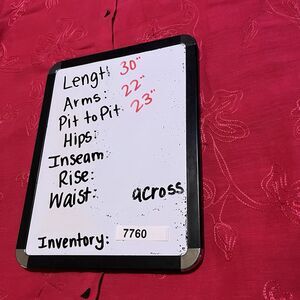 Length: 30"
Arms: 22"
Pit to Pit: 23"
Hips:
Inseam
Rise:
Waist: across
Inventory: 7760